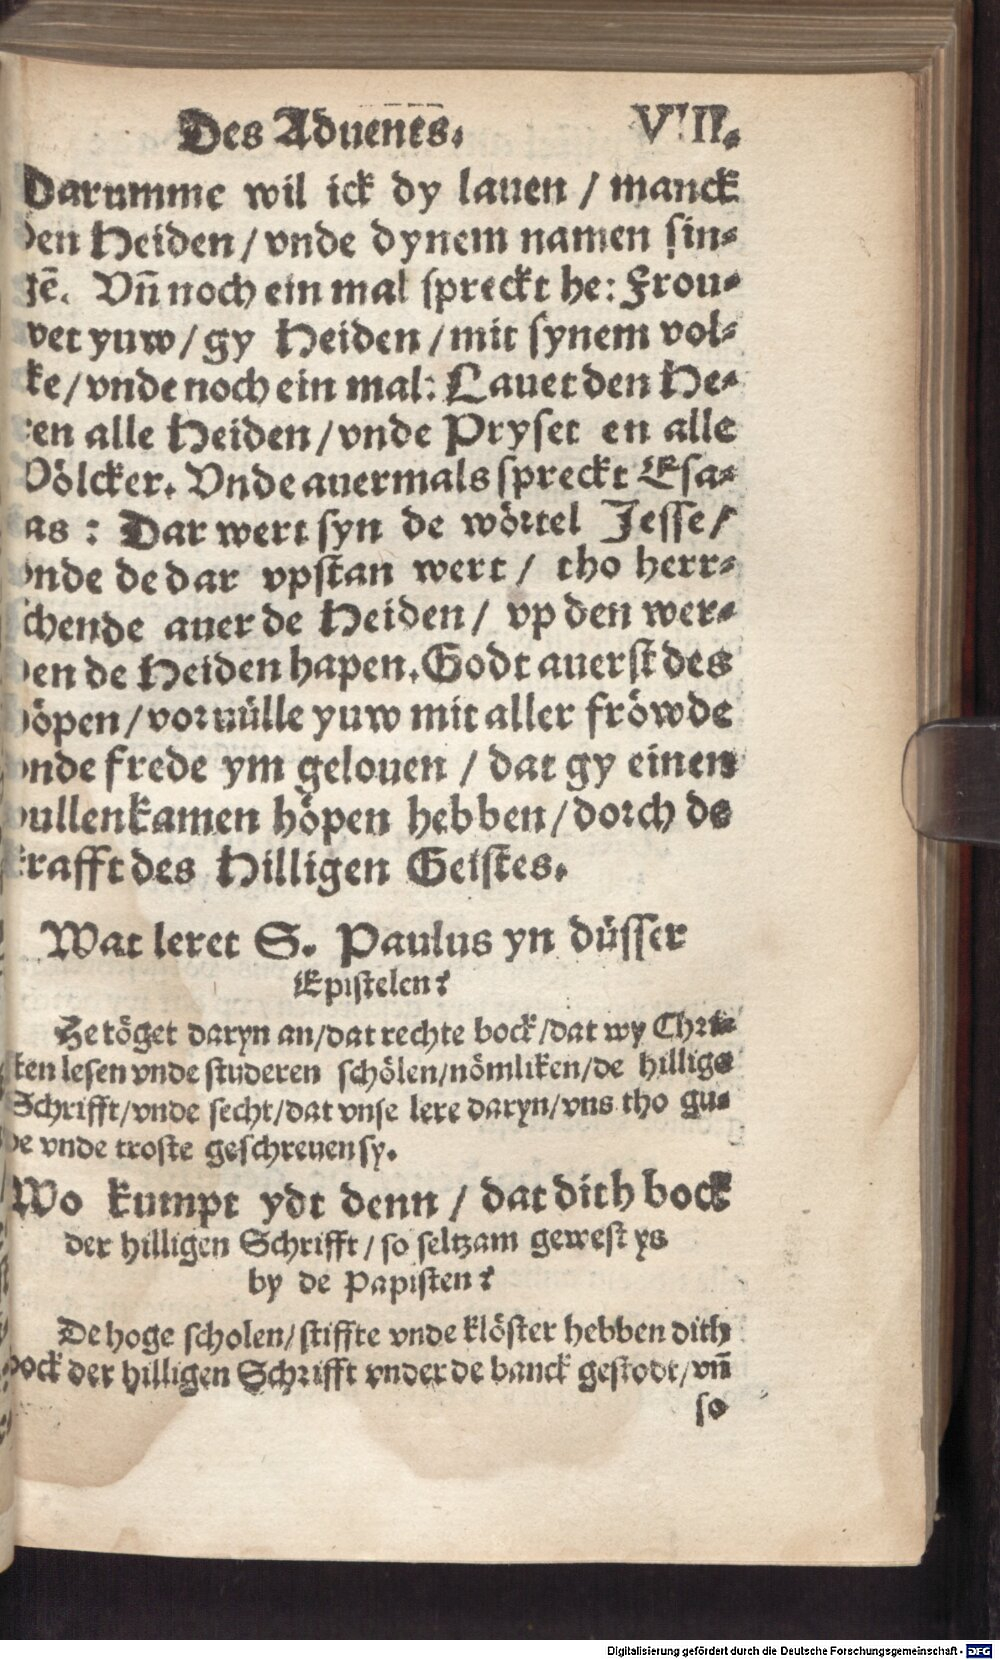 Des Aduentes. VIII.
Darumme wil ick dy lauen / manck
den Heiden / vnde dynem namen sin⸗
gē. Vn̄ noch ein mal spreckt he: Frou⸗
wet yuw / gy Heiden / mit synem vol⸗
ke / vnde noch ein mal: Lauet den He⸗
ren alle Heiden / vnde Pryset en alle
Völcker. Vnde auermals spreckt Esa⸗
as : Dar wert syn de wörtel Jesse /
vnde de dar vpstan wert / tho herr⸗
schende auer de Heiden / vp den wer⸗
den de Heiden hapen. Godt auerst des
höpen / voruülle yuw mit aller fröwde
vnde frede ym gelouen / dat gy einen
vullenkamen höpen hebben / dorch de
krafft des Hilligen Geistes.
Wat leret S. Paulus yn düsser
Epistelen?
He töget daryn an / dat rechte bock / dat wy Chri⸗
sten lesen vnde studeren schölen / nömliken / de hillige
Schrifft / vnde secht / dat vnse lere daryn / vns tho gu⸗
de vnde troste geschreuen sy.
Wo kumpt ydt denn / dat dith bock
der hilligen Schrifft / so seltzam gewest ys
by de Papisten?
De hoge scholen / stiffte vnde klöster hebben dith
bock der hilligen Schrifft vnder de banck gestodt / vn̄
so
Digitalisierung gefördert durch die Deutsche Forschungsgemeinschaft - DFG